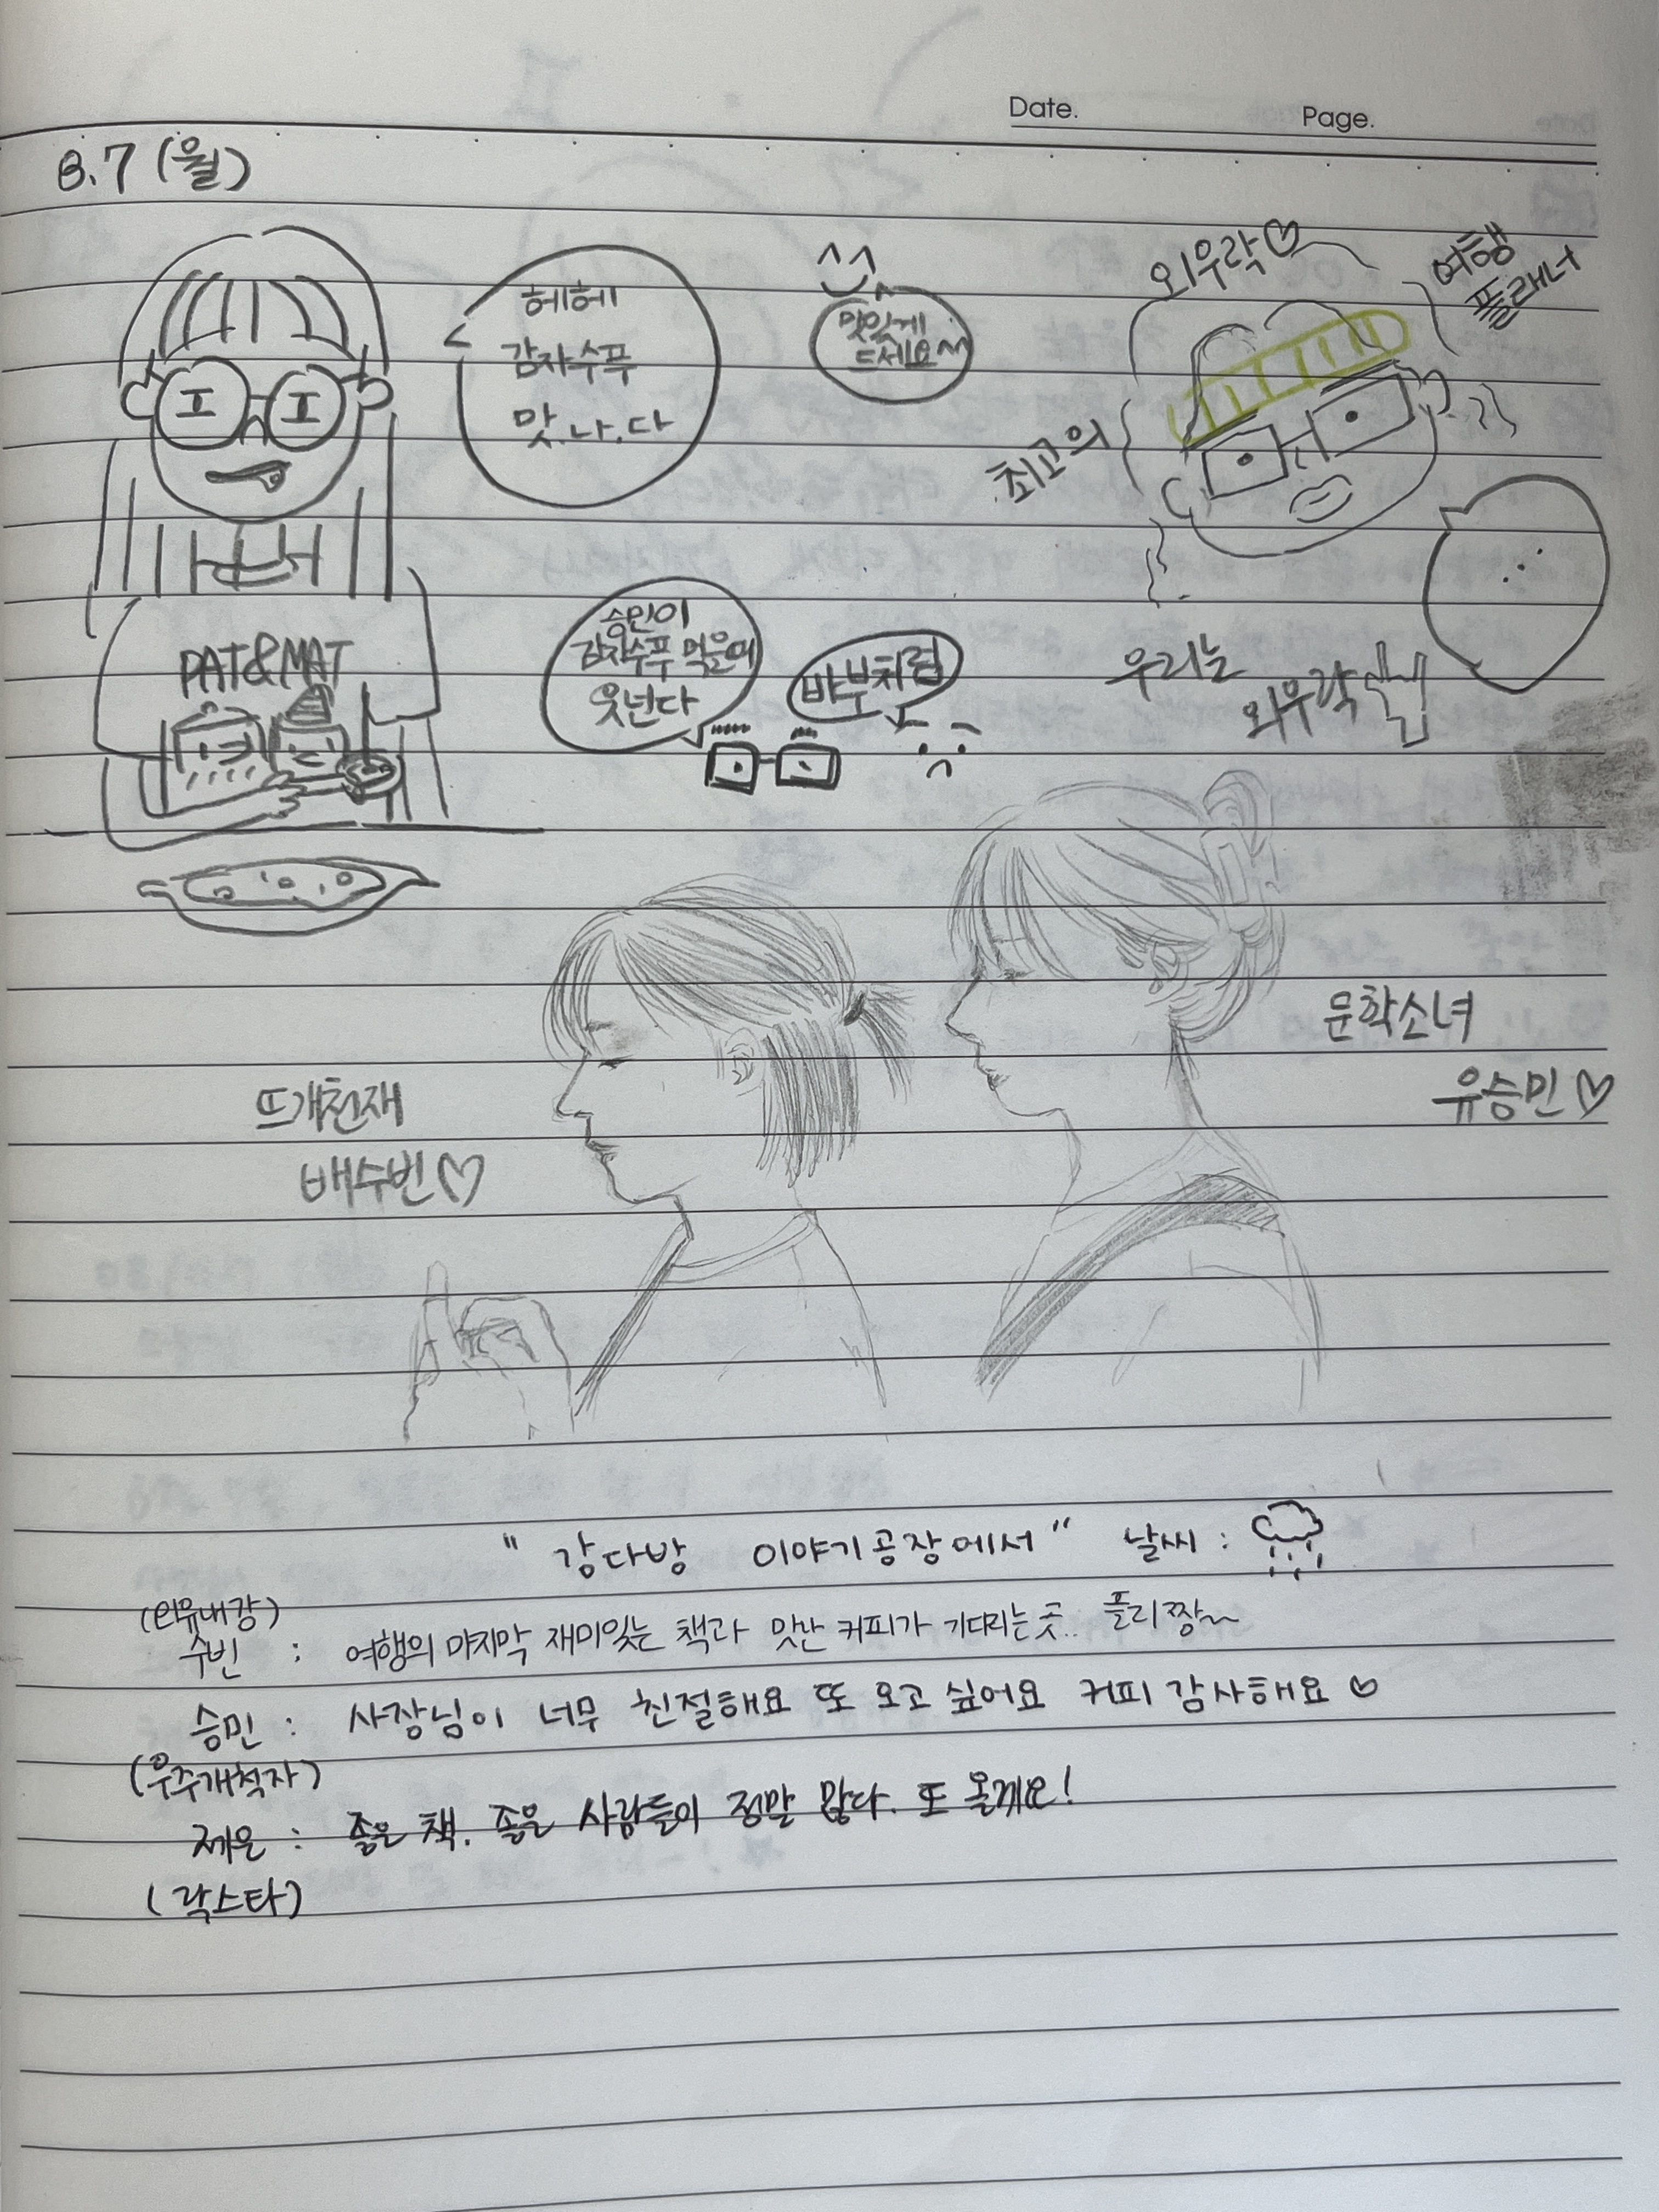 Date.
Page.
8.7 (월)
헤헤
감자수푸
맛.나.다
맛있게
드세요^^
외우락♡
여행
플래너
최고의
PAT&MAT
승민이
감자수푸 먹은며
웃넌다
바부처럼
우리는
외우락
문학소녀
유승민♡
뜨개천재
배수빈♡
" 강다방 이야기공장에서 " 날씨 :
수빈 : 여행의 마지막 재미있는 책과 맛난 커피가 기다리는 곳.. 플리짱~
승민 : 사장님이 너무 친절해요 또 오고 싶어요 커피 감사해요 ♡
(우주개척자)
제은 : 좋은 책. 좋은 사람들이 정말 많다. 또 올게요!
(락스타)